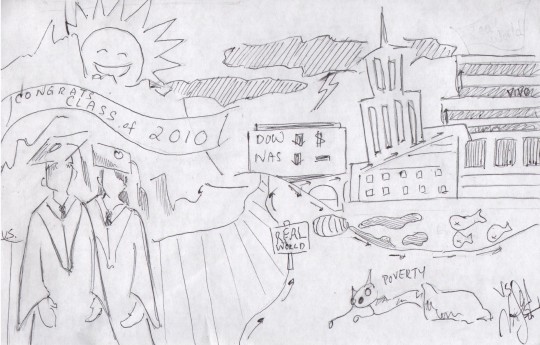 CONGRATS
CLASS of 2010
DOW $
NAS
VIVO
VS.
REAL
WORLD
POVERTY